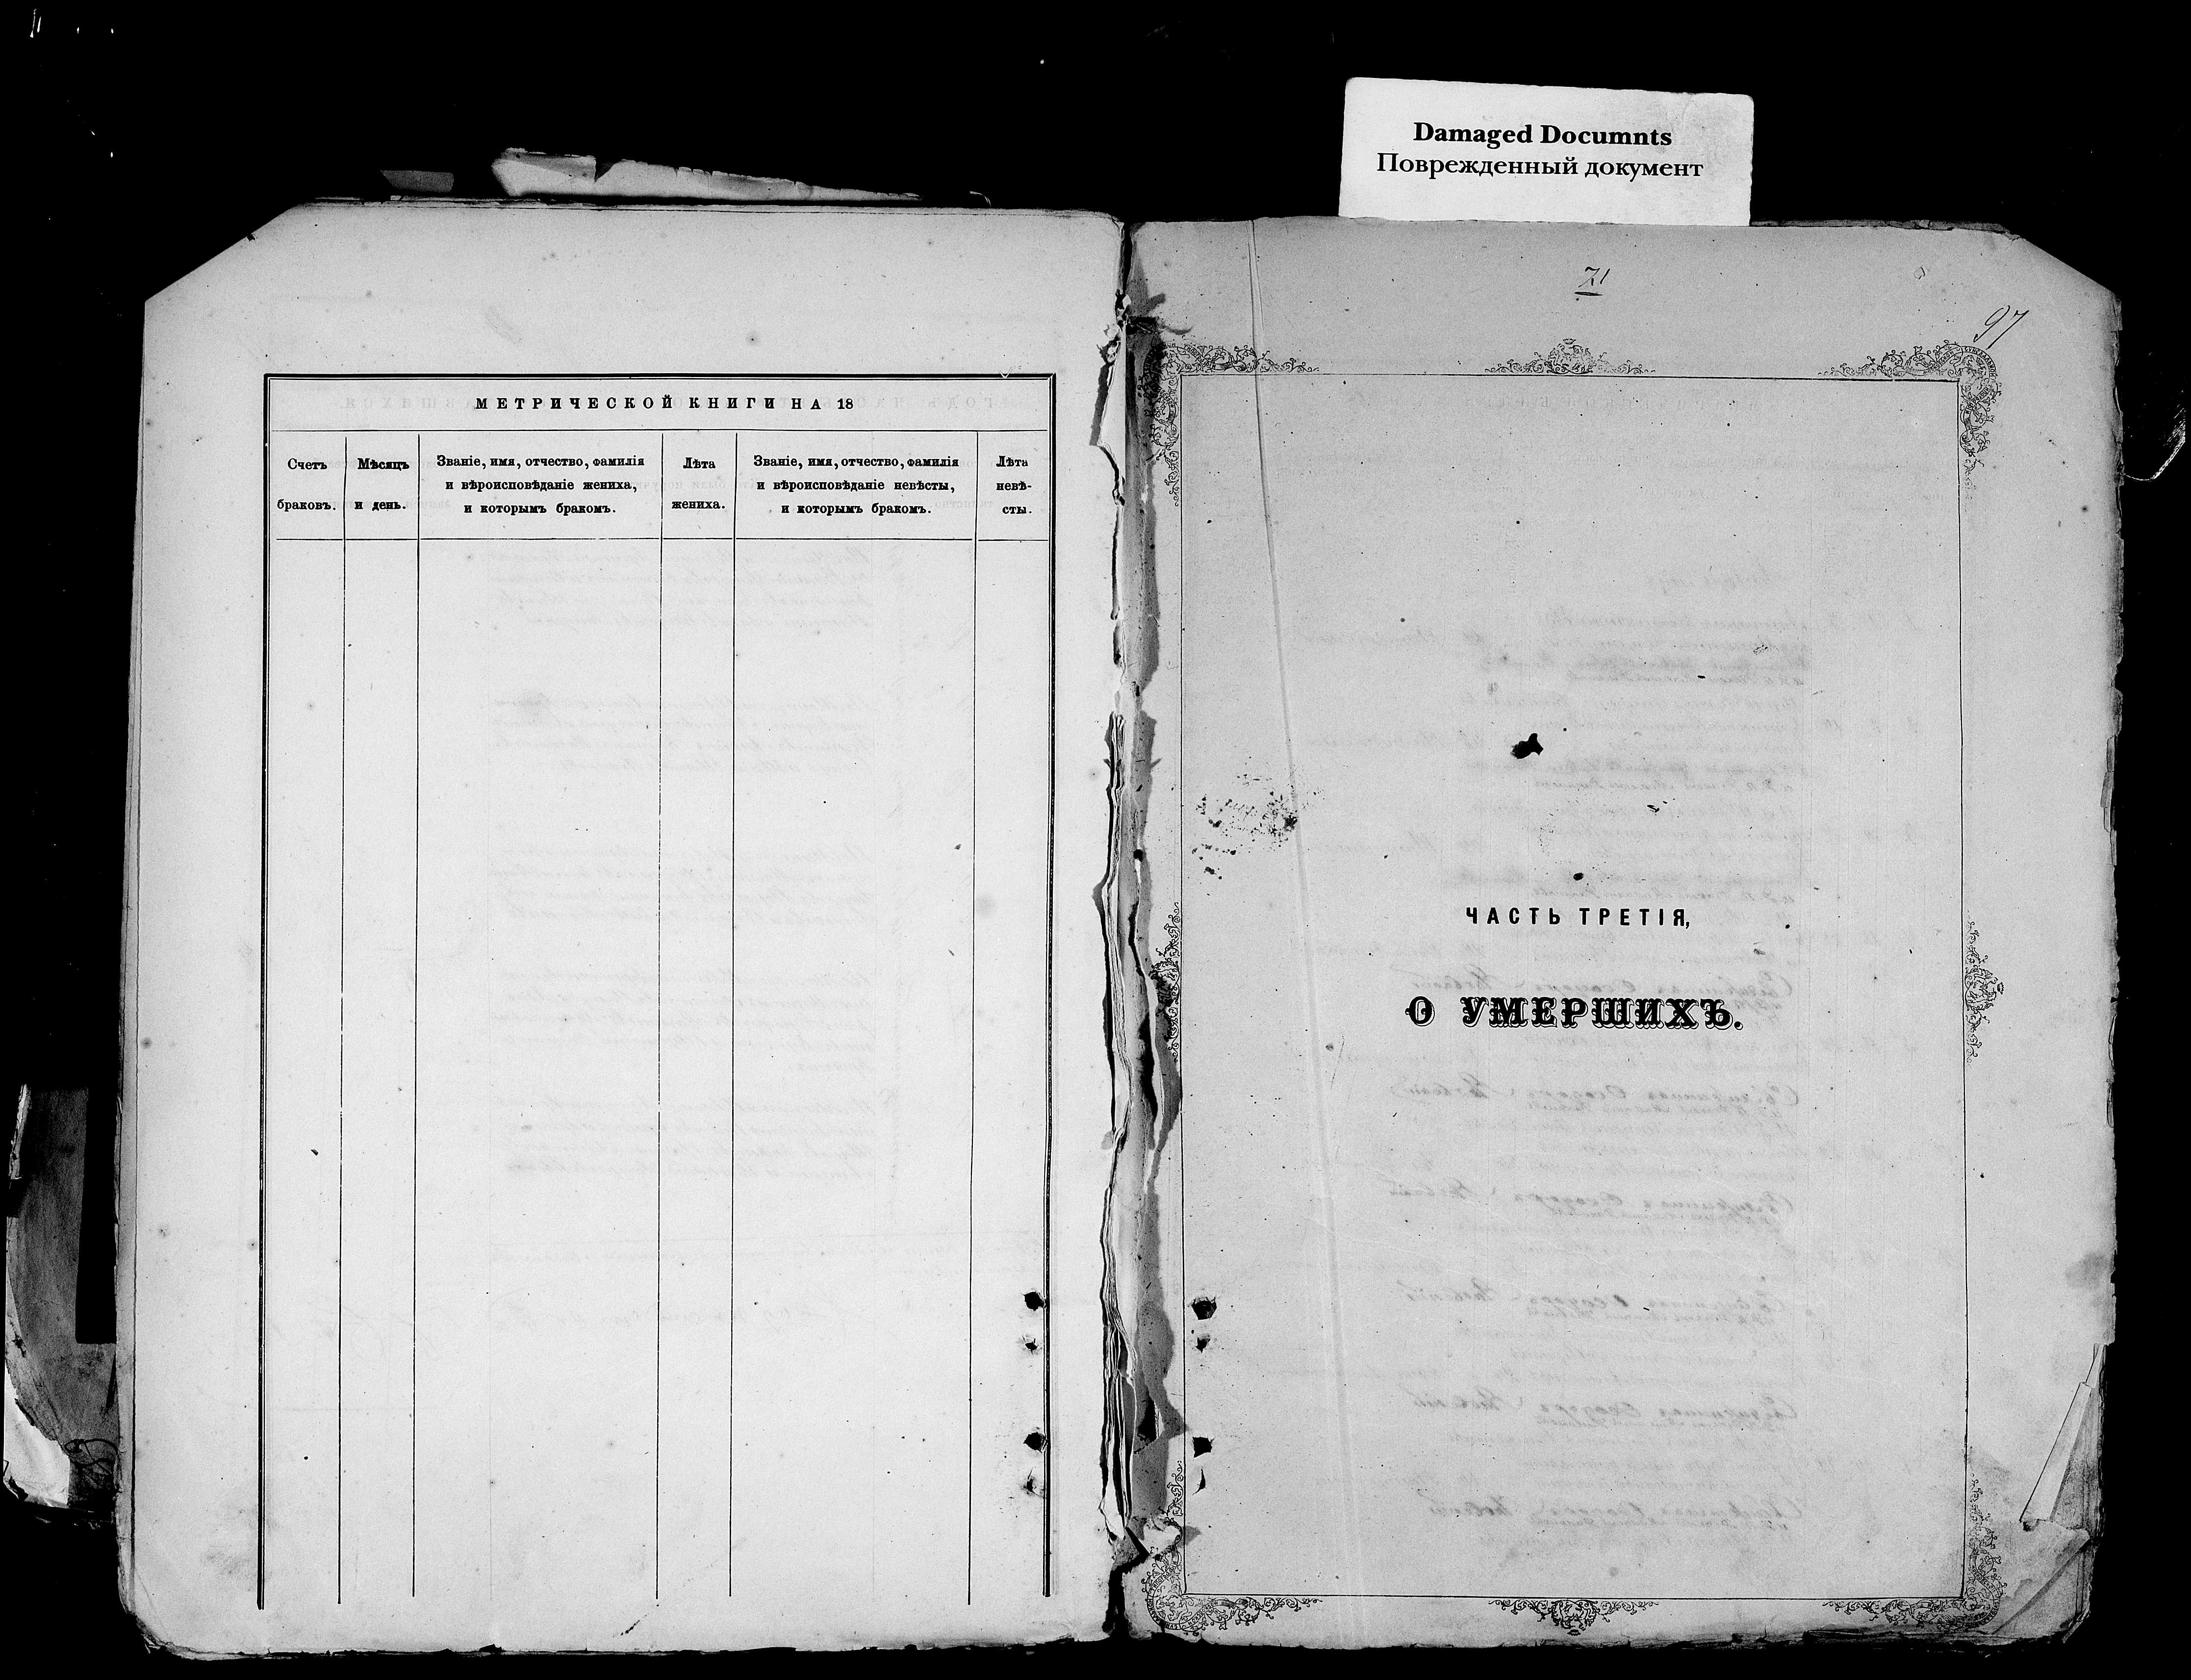 Damaged Documnts
Поврежденный документ
МЕТРИЧЕСКОЙ КНИГИ НА 18
Счетъ браковъ.
Мѣсяцъ и день.
Званіе, имя, отчество, фамилія
и вѣроисповѣданіе жениха,
и которымъ бракомъ.
Лѣта
жениха.
Званіе, имя, отчество, фамилія
и вѣроисповѣданіе невѣсты,
и которымъ бракомъ.
Лѣта
невѣ-
сты.
71
97
ЧАСТЬ ТРЕТІЯ,
О УМЕРШИХЪ.